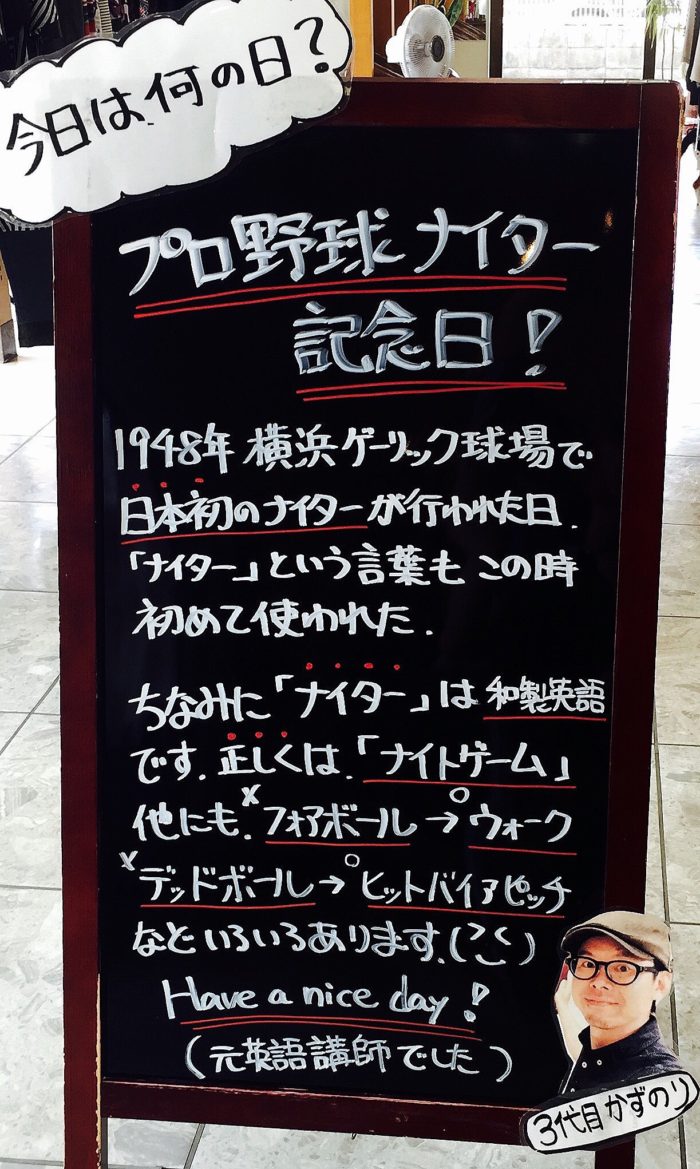 今日は何の日?
プロ野球ナイター
記念日!
1948年横浜ゲーリック球場で
日本初のナイターが行われた日.
「ナイター」という言葉もこの時
初めて使われた.
ちなみに「ナイター」は和製英語
です.正しくは.「ナイトゲーム」
他にも.×フォアボール→○ウォーク
×デッドボール→○ヒットバイアピッチ
などいろいろあります.
Have a nice day!
(元英語講師でした)
3代目かずのり